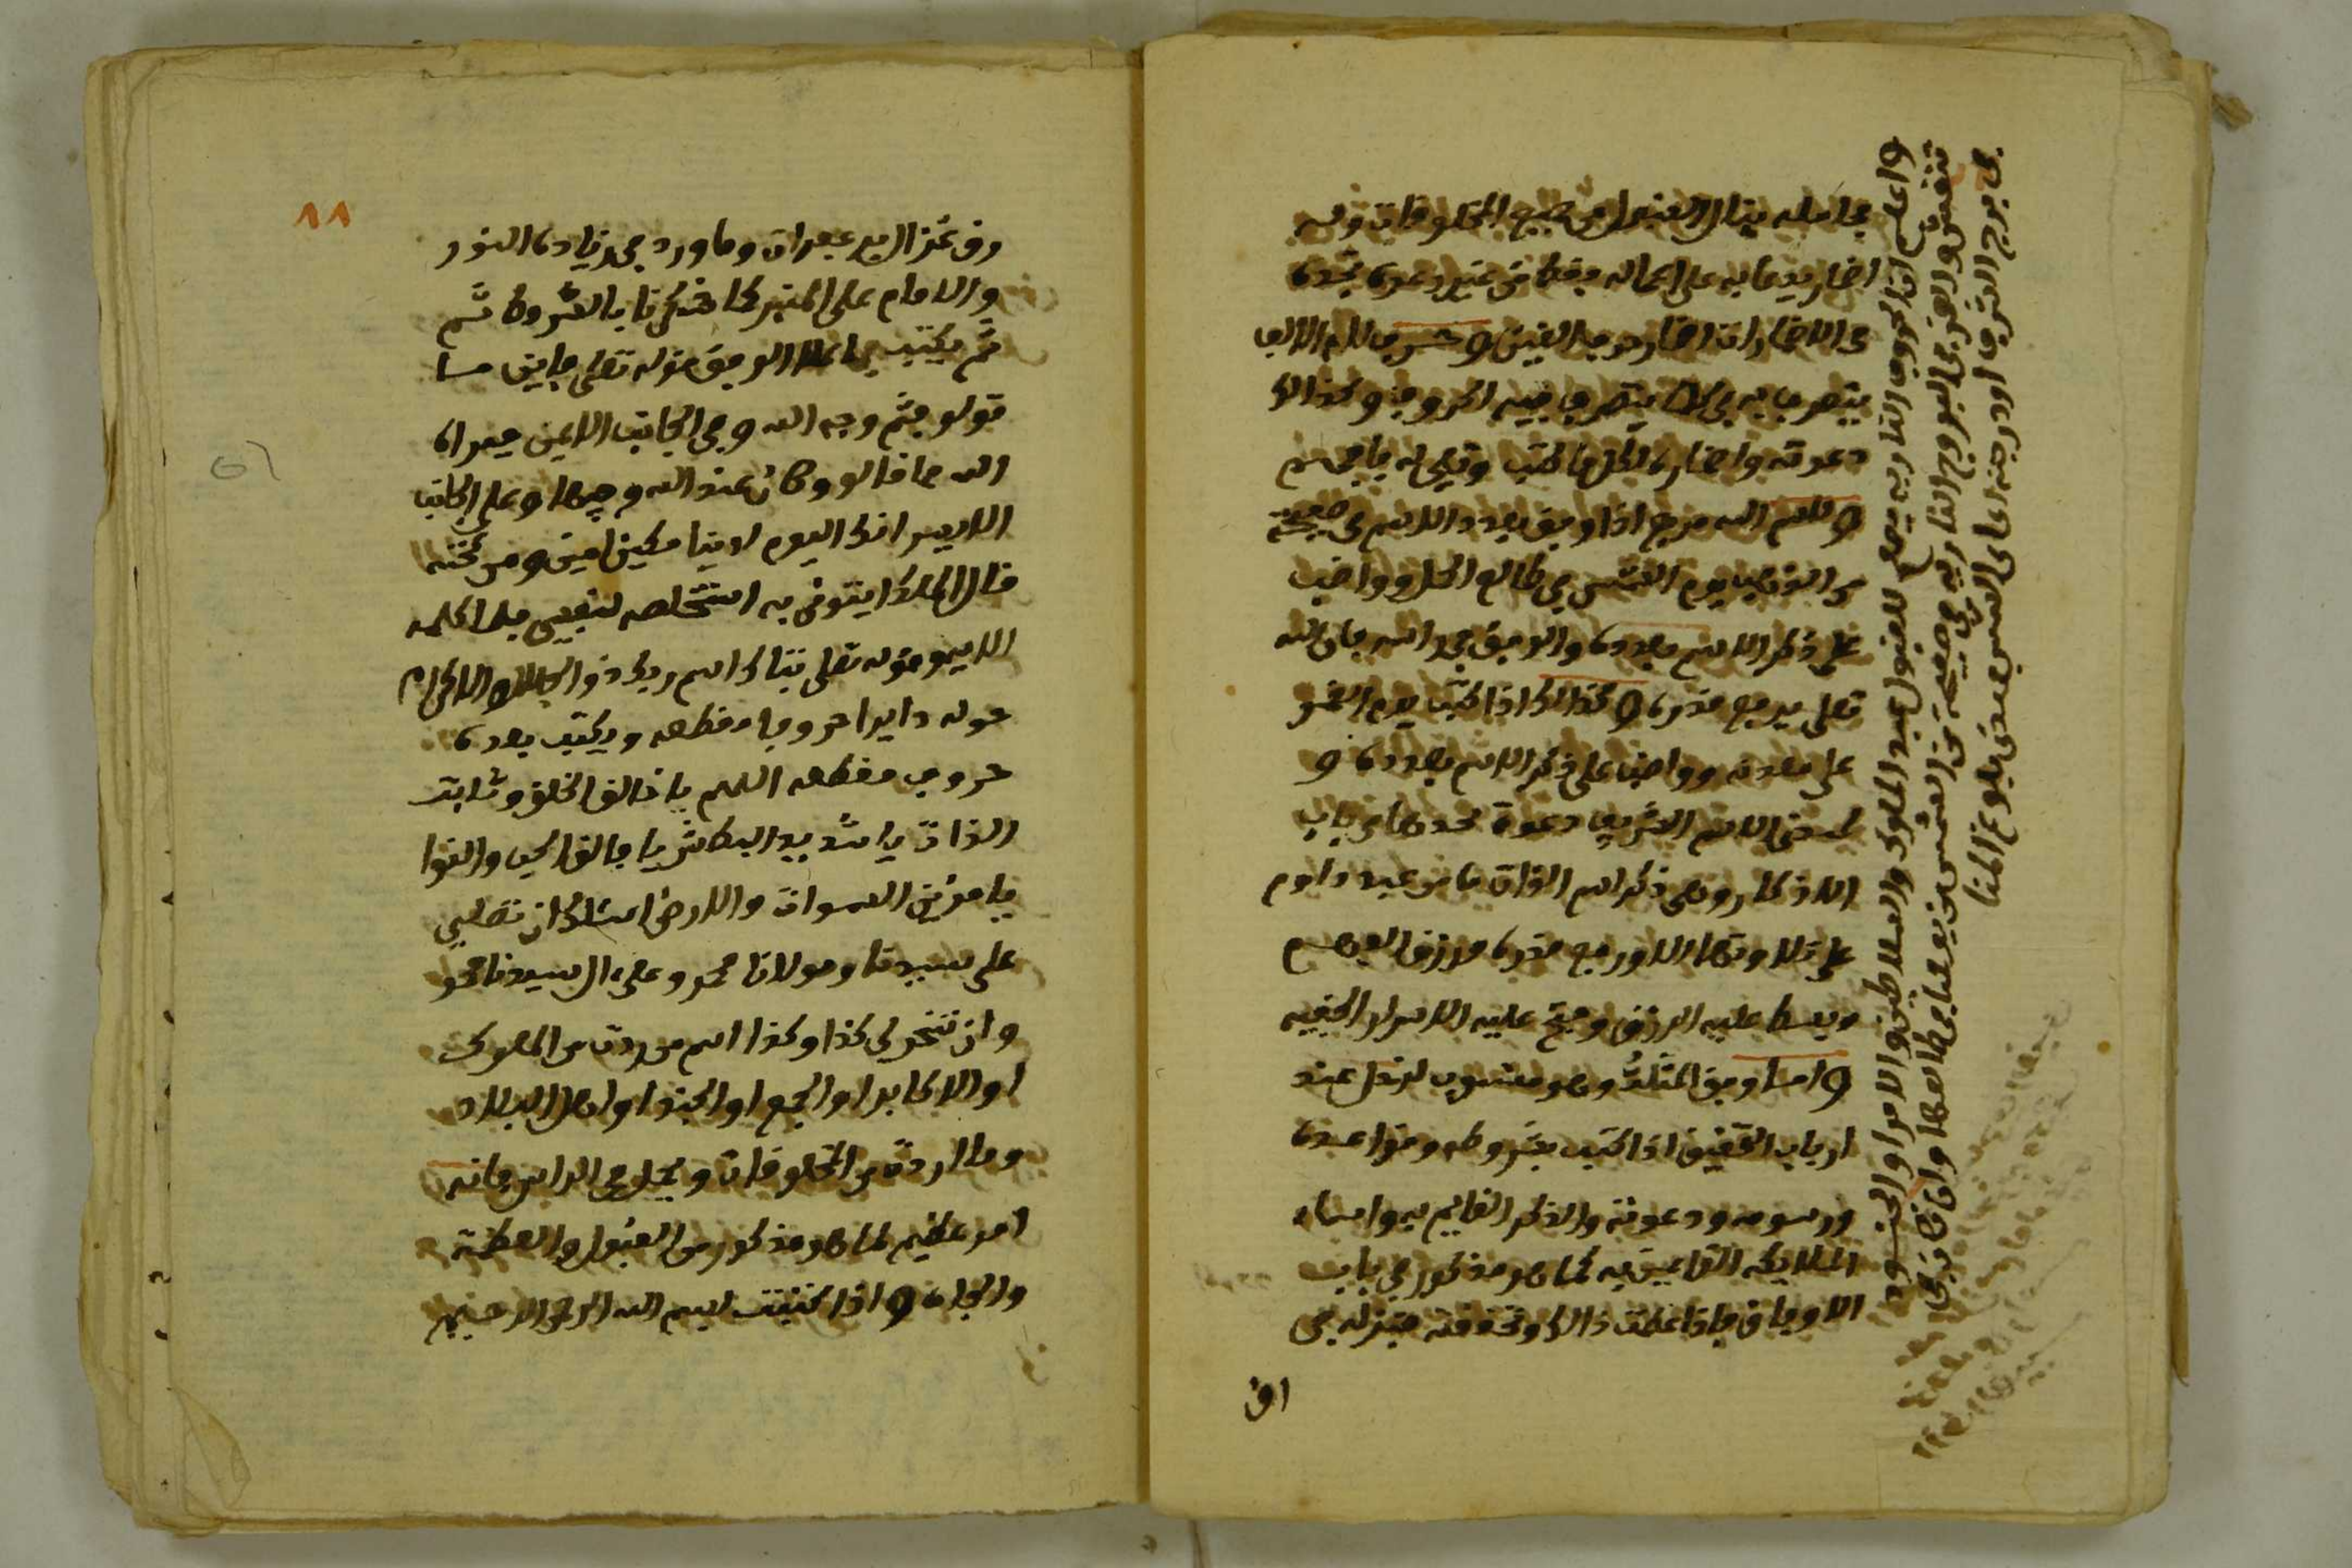 فحامله ينال القبول من جميع المخلوقات وله
اضمار يدعا به على اعماله بفطا من غير دعوة تجده
في الاضمارات اضمار حرف الغين و حرف لام الالف
يتصرف به في كلما يتصرف فيه الحروف وكذالك
دعوته واضماره لكل ما كتب وقيل له يا فهيم
و للاسم الله مربع اذا وفق بعدد الاسم في صفيحة
من الذهب يوم الشمس في طالع الحمل وواضب
على ذكر الاسم بعدده والوفق في يده فان الله
تعلى يرفع قدره و كذالك اذا كتب يوم القمر
على معدنه وواضب على ذكر الاسم بعدده و
لهذا الاسم الشريف دعوة تجدها في باب
الاذكار وهي ذكر اسم الذات ما من عبد داوم
على تلاوتها الا ورفع قدره ورزق الفهم
وبسط عليه الرزق وفتح عليه الاسرار الخفيه
و اما وفق المثلث وهو منسوب لزحل عند
ارباب التحقيق اذا كتب بشروطه وقواعده
ورسومه ودعوته والذكر القايم به واسماء
الملايكه القايمين به كما هو مذكور في باب
الاوفاق فاذا علمت ذالك وتحققته فتنزله في
رق
واعلم ان الحروف النارية يصلح للقبول عند الملوك والسلاطين والامرا والجنود
تنقش والقمر في البروج النارية في صفيحة من الشمس من يوم عيا في طالعها وان كان في
في برج الشرف او درجته اعاى الشمس فهذا بلوغ المنا
٨٨
رق غزال بزعفران وماورد في زيادة النور
والامام على المنبر كما ذكرنا بالشروط ثم
ثم يكتب في اعلا الوفق قوله تعلى فاين ما
تولو فثم وجه الله و في الجانب الايمن فبراه
الله مما قالو وكان عند الله وجيها و على الجانب
الايسر انك اليوم لدينا مكين امين ومن تحته
قال الملك ايتوني به استخلصه لنفسي فلما كلمه
الايه وقوله تعلى تبارك اسم ربك ذو الجلال والاكرام
حوله دايرا حروفا مقطعه ويكتب بعده
حروف مقطعه اللهم يا خالق الخلق وثابت
الذات يا شديد البطش يا فالق الحب والنوا
يا مزين السموات والارض اسئلك ان تصلي
على سيدنا ومولانا محمد وعلى ءال سيدنا محمد
وان تسخر لي كذا وكذا اسم من اردت من الملوك
او الاكابر او الجمع او الجند او اهل البلاد
وما اردت من المخلوقات ويجعل في الراس فانه
امر عظيم كما هو مذكور من القبول والعظمة
والجاه و اذا كتبت بسم الله الرحمن الرحيم